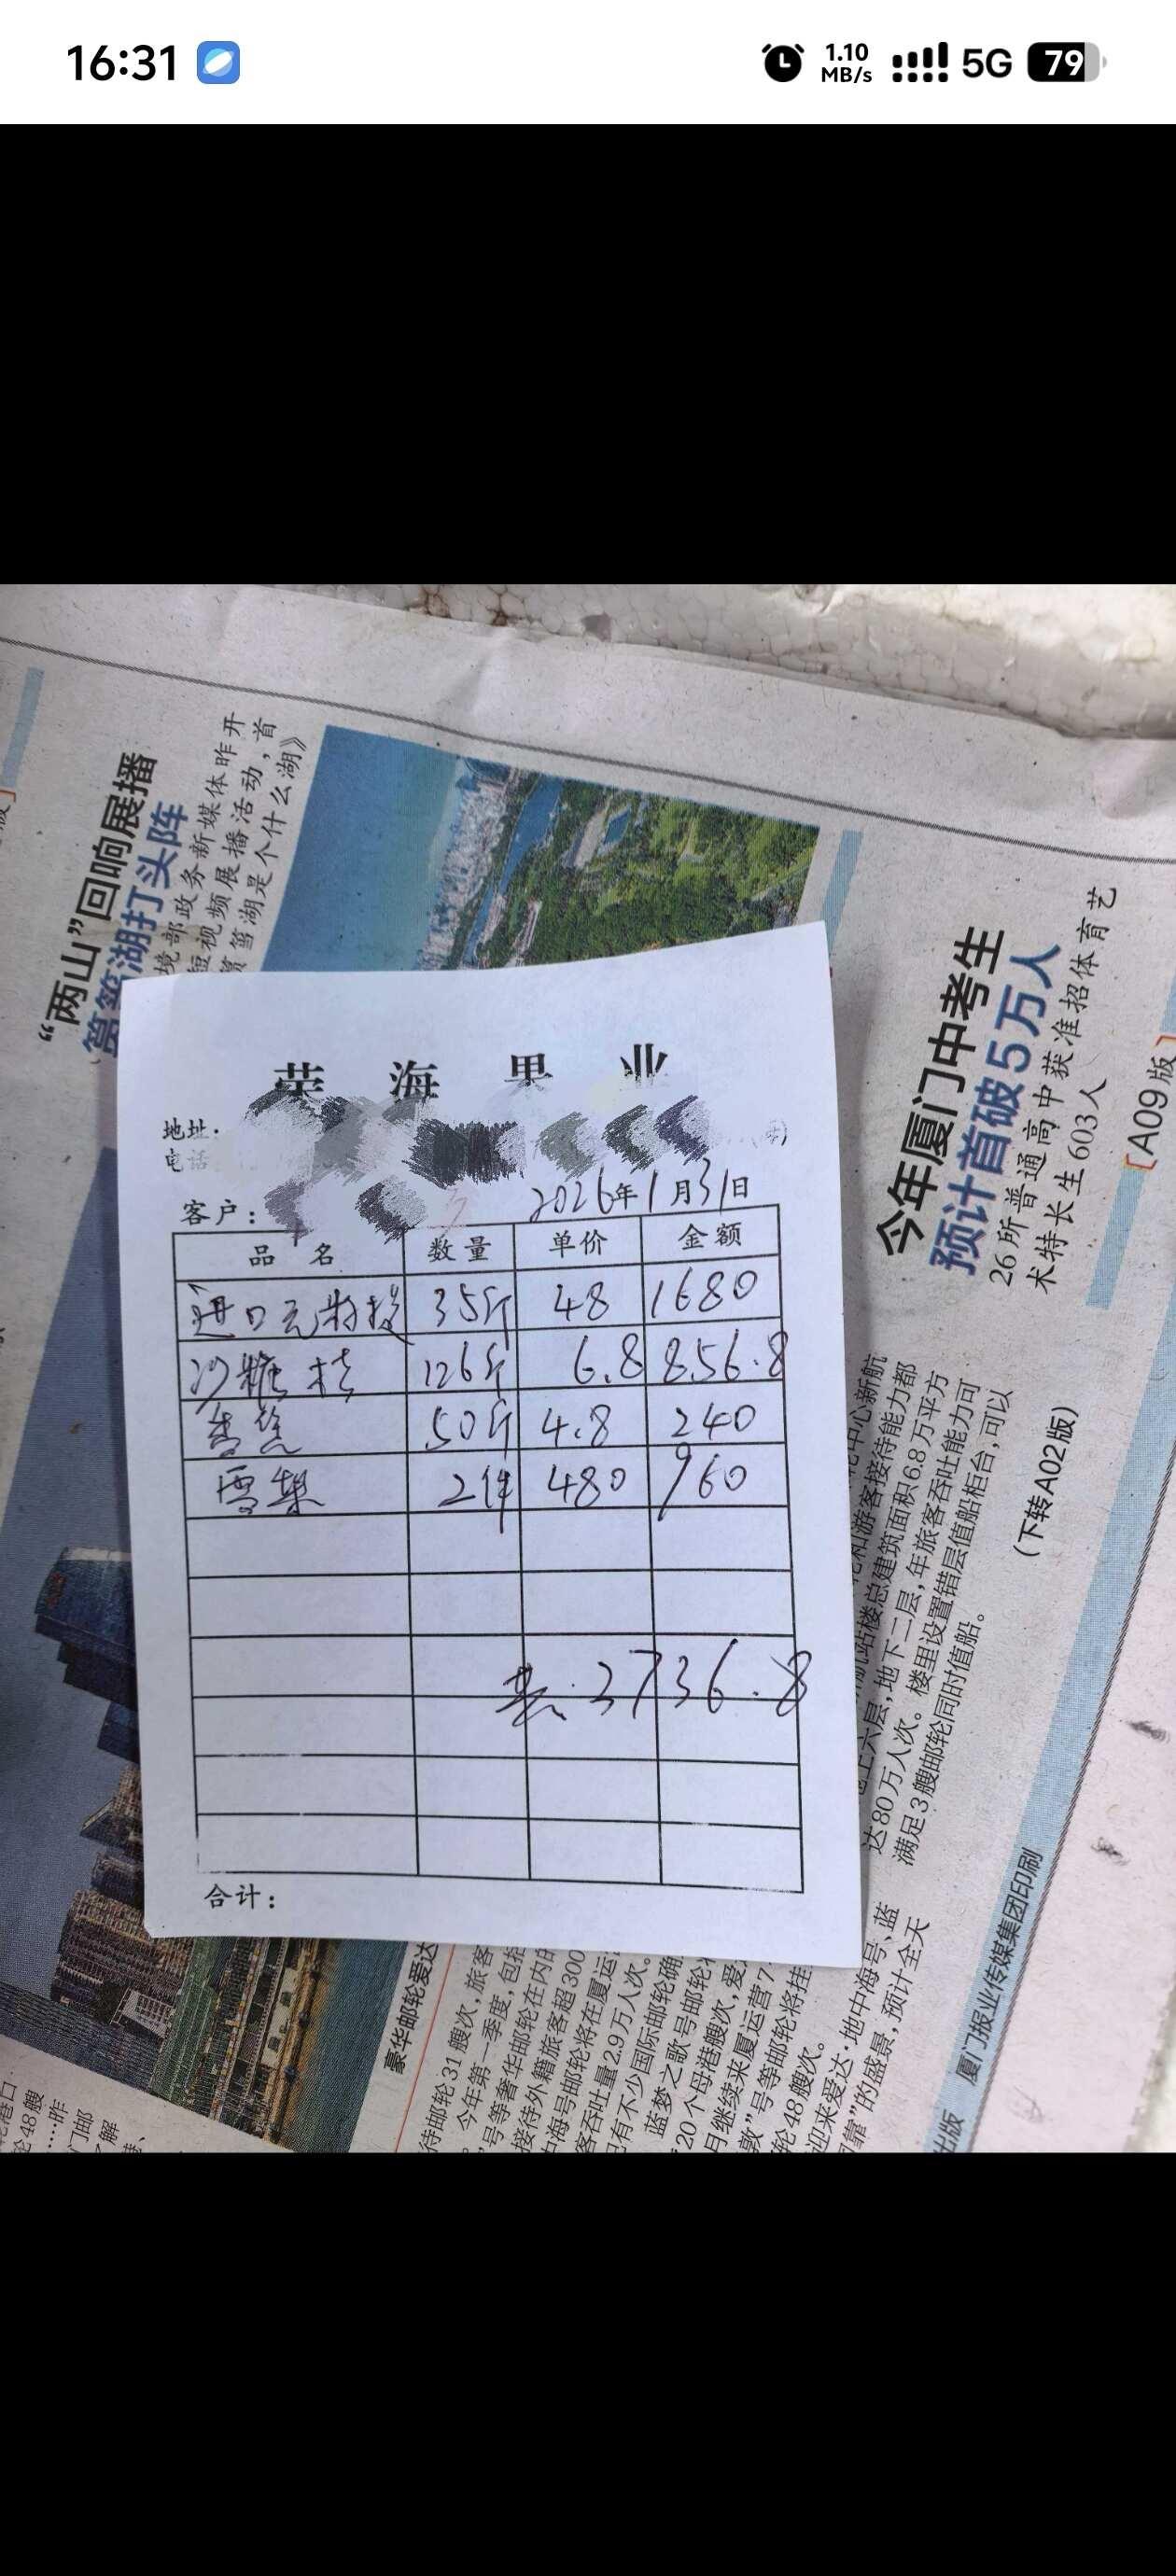 16:31
1.10 MB/s 5G 79
“两山”回响展播
筼筜湖打头阵
境部政务新媒体昨开
短视频展播活动，首
筼筜湖是个什么湖》
今年厦门中考生
预计首破5万人
26所普通高中获准招体育艺
术特长生603人
[A09版]
荣海果业
地址：
电话
客户：
2026年1月31日
品名 数量 单价 金额
35斤 48 1680
沙糖桔 126斤 6.8 856.8
香蕉 50斤 4.8 240
雪梨 2件 480 960
共：3736.8
合计：
中心新航
和游客接待能力都
航站楼总建筑面积6.8万平方
地上六层，地下二层，年旅客吞吐能力可
达80万人次。楼里设置错层值船柜台，可以
满足3艘邮轮同时值船。
（下转A02版）
豪华邮轮爱达
待邮轮31艘次，旅客
。今年第一季度，包括
号等奢华邮轮在内的
接待外籍旅客超300
中海号邮轮将在厦运
客吞吐量2.9万人次。
已有不少国际邮轮确
蓝梦之歌号邮轮
20个母港艘次，爱
月继续来厦运营7
敦”号等邮轮将挂
轮48艘次。
迎来爱达·地中海号、蓝
靠”的盛景，预计全天
出版 厦门报业传媒集团印刷
港口
轮48艘
……昨
门邮
了解